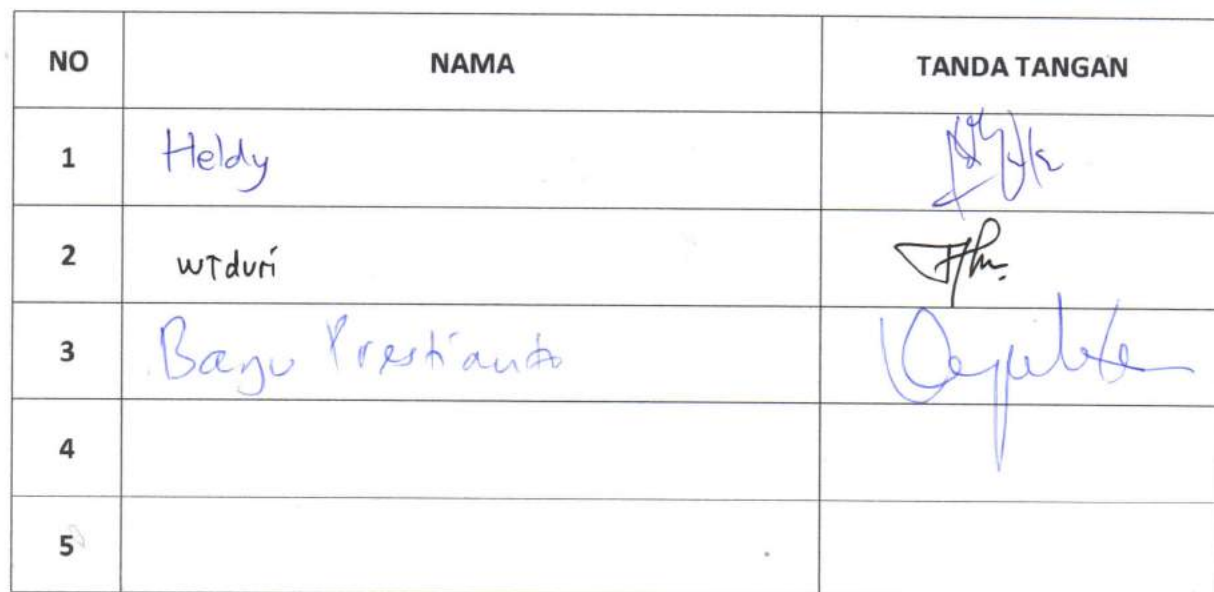 NO NAMA TANDA TANGAN
1 Heldy
2 widuri
3 Bayu Prestianto
4
5